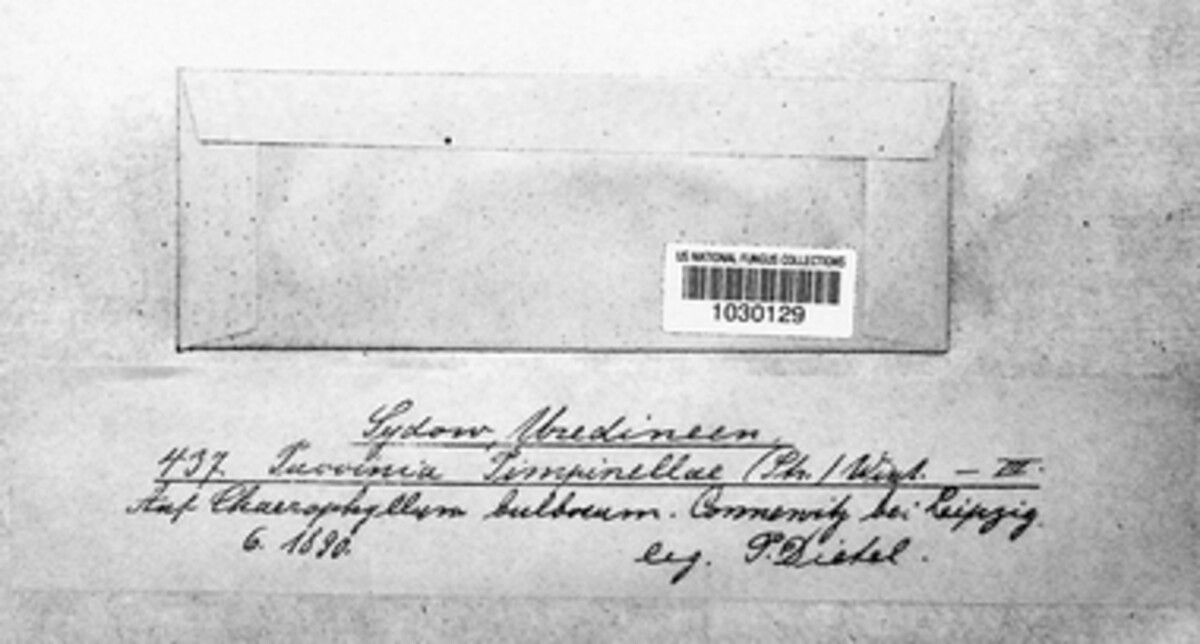 US NATIONAL FUNGUS COLLECTIONS
1030129
Sydow, Uredineen.
437. Puccinia Pimpinellae (Str.) Wint. — III.
Auf Chaerophyllum bulbosum. Connewitz bei Leipzig.
6. 1890. leg. P. Dietel.